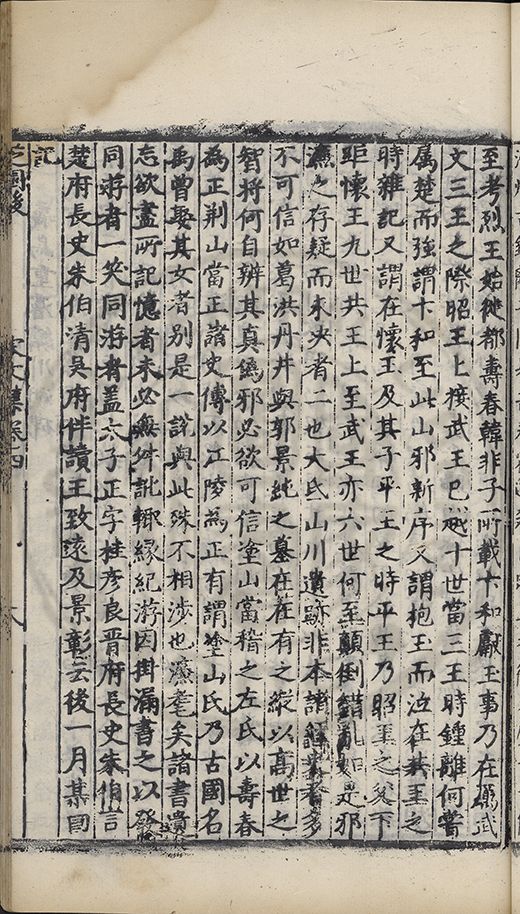 至考烈王始徙都壽春韓非子所載卞和獻玉事乃在厲武
文三王之際昭王上接武王已越十世當三王時鍾離何嘗
属楚而強謂卞和至此山邪新序又謂抱玉而泣在共王之
時雜記又謂在懷王及其子平王之時平王乃昭王之父下
距懷王九世共王上至武王亦六世何至顛倒錯亂如是邪
之存疑而未决者二也大氐山川遺跡非本諸經史者多
不可信如葛洪丹井與郭景純之墓在在有之縱以髙世之
智將何自辨其真偽邪必欲可信塗山當稽之左氏以壽春
為正荆山當正諸史傳以江陵為正有謂塗山氏乃古國名
禹曾娶其女者别是一說與此殊不相涉也濂耄矣諸書遺
忘欲盡所記憶者未必無舛訛輙縁紀游因掛漏書之以發
同游者一笑同游者盖六子正字桂彦良晋府長史朱伯言
楚府長史朱伯清吳府伴讀王致遠及景彰云後一月某日
記
芝園後 宋文集卷四 八